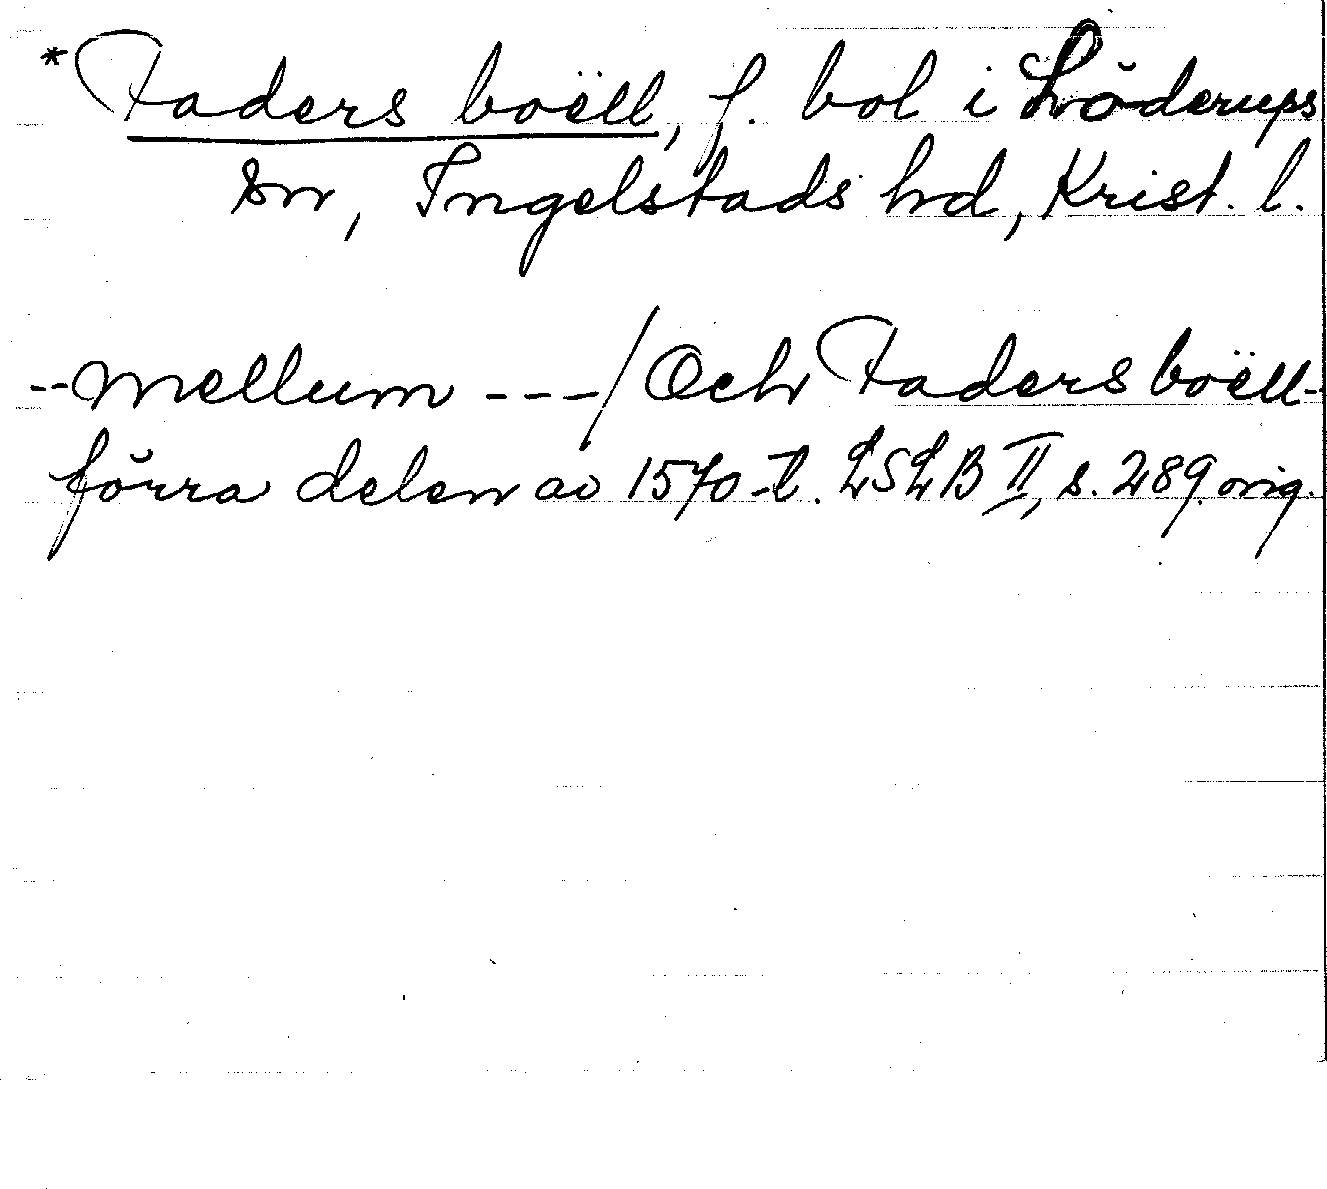 *Faders boëll, f. bol i Löderups
sn, Ingelstads hd, Krist. l.
--mellum ---/ Och Faders boëll-
förra delen av 1570-t. LSLB II, s. 289. orig.